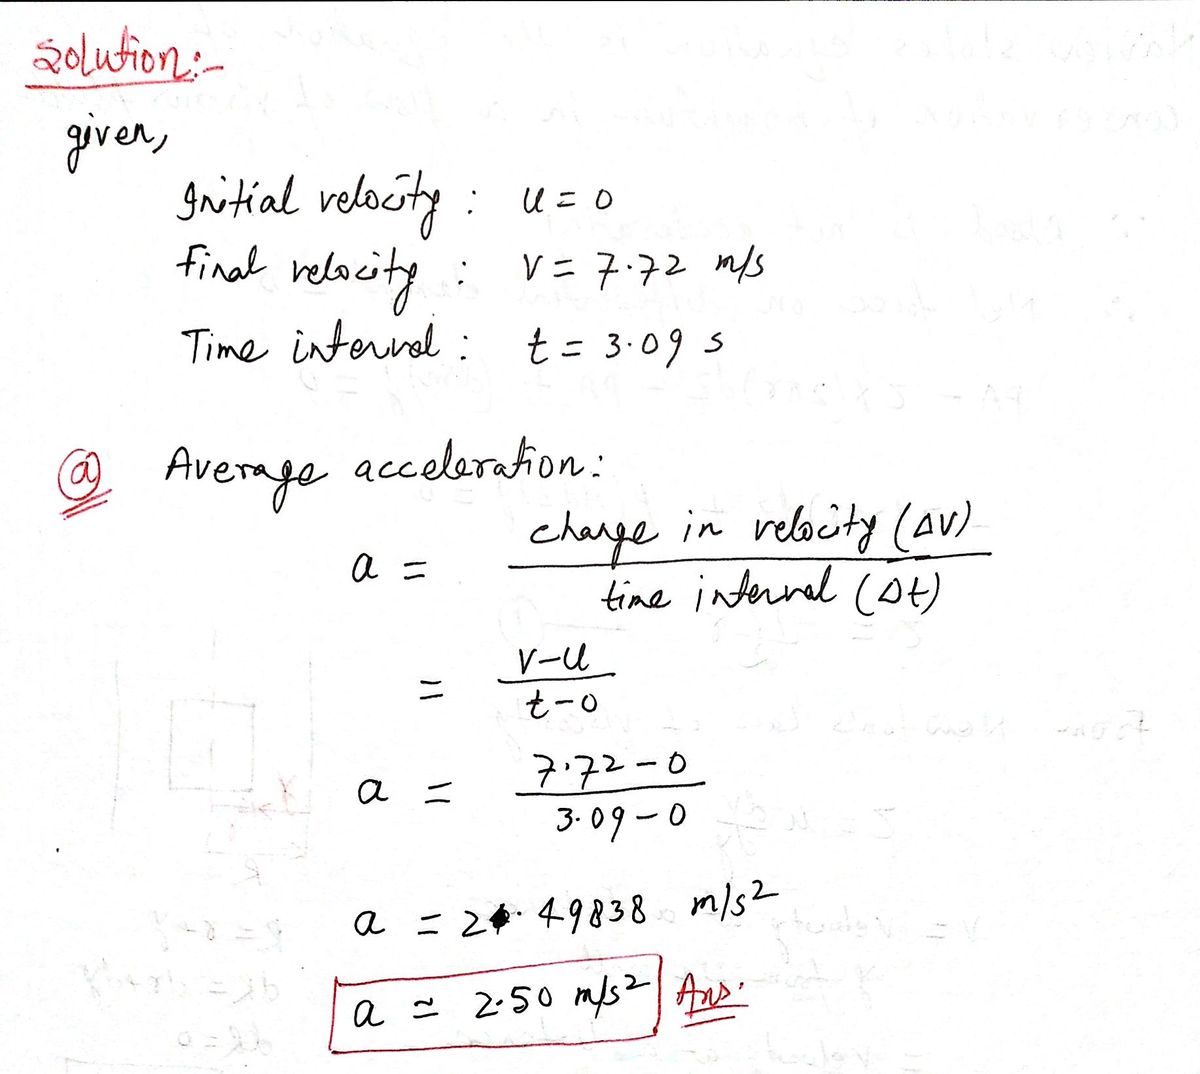 Solution:-
given,
Initial velocity : u = 0
final velocity : v = 7.72 m/s
Time interval : t = 3.09 s
(a) Average acceleration:
a = change in velocity (Δv) / time interval (Δt)
= v-u / t-0
a = 7.72 - 0 / 3.09 - 0
a = 2.49838 m/s²
a ≃ 2.50 m/s² Ans.